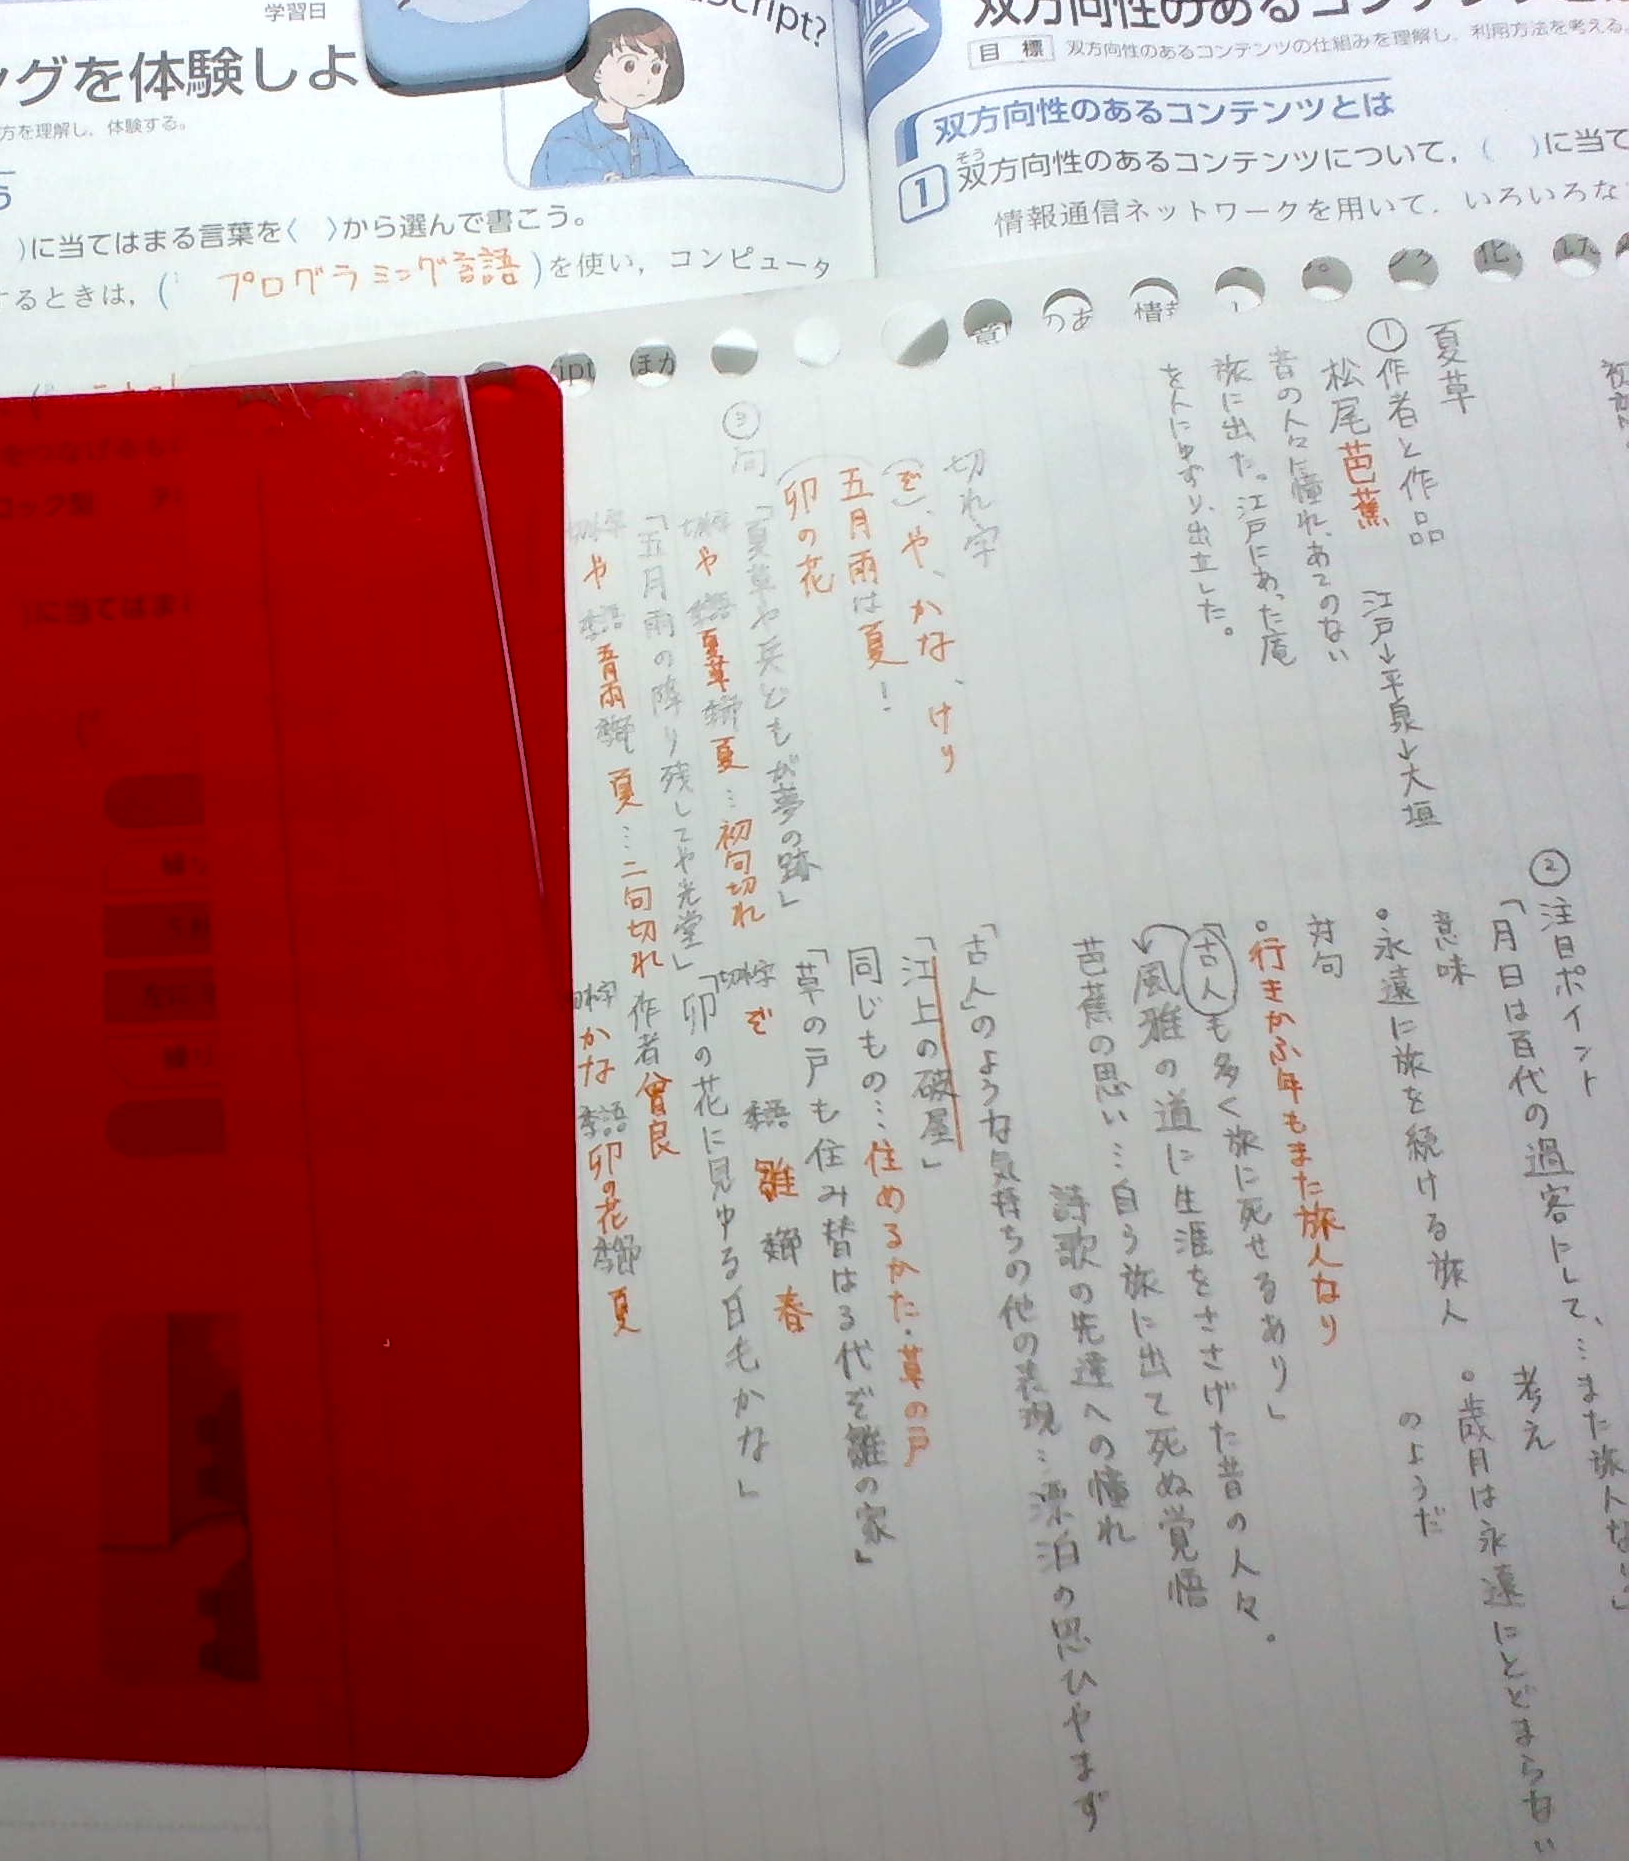 学習日
ングを体験しよ
方を理解し,体験する。
cript?
)に当てはまる言葉を〈 〉から選んで書こう。
するときは,( プログラミング言語 )を使い,コンピュータ
双方向性のあるコンテンツ
目標 双方向性のあるコンテンツの仕組みを理解し,利用方法を考える。
双方向性のあるコンテンツとは
1 双方向性のあるコンテンツについて,( )に当て
そう
情報通信ネットワークを用いて,いろいろな
ipt
ほか
のあ
情
化
夏草
①作者と作品
松尾芭蕉 江戸→平泉→大垣
昔の人々に憧れ、あてのない
旅に出た。江戸にあった庵
を人にゆずり、出立した。
②注目ポイント
「月日は百代の過客にして、…また旅人なり」
意味
考え
。永遠に旅を続ける旅人
。歳月は永遠にとどまらない
のようだ
対句
。行きかふ年もまた旅人なり
「古人も多く旅に死せるあり」
風雅の道に生涯をささげた昔の人々。
芭蕉の思い…自う旅に出て死ぬ覚悟
詩歌の先達への憧れ
「古人」のような気持ちの他の表現…漂泊の思ひやまず
「江上の破屋」
同じもの…住めるかた・草の戸
切れ字
(ぞ)、や、かな、けり
五月雨は夏!
卯の花
③句
「夏草や兵どもが夢の跡」
切れ字 や 季語 夏草 季節 夏…初句切れ
「五月雨の降り残してや光堂」
切れ字 や 季語 五月雨 季節 夏…二句切れ
「草の戸も住み替はる代ぞ雛の家」
切れ字 ぞ 季語 雛 季節 春
「卯の花に見ゆる白毛かな」
作者曾良
切れ字 かな 季語 卯の花 季節 夏
に当てはま